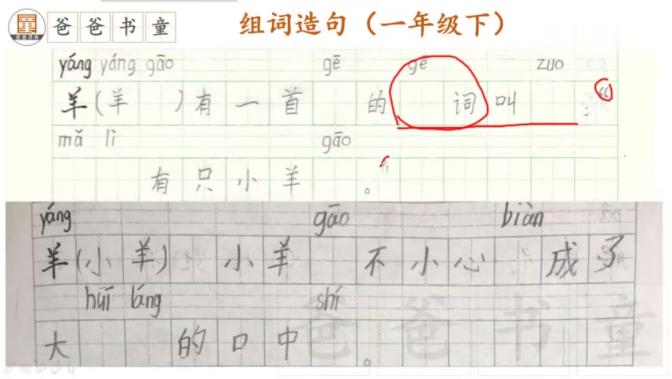 爸爸书童
组词造句（一年级下）
yáng yáng gāo gē gē zuo
羊(羊 )有一首 的 词叫：“
mǎ lì gāo
有只小羊 。”
yáng gāo biàn
羊(小羊) 小羊 不小心 成了
huī láng shí
大 的口中 。
爸爸书童